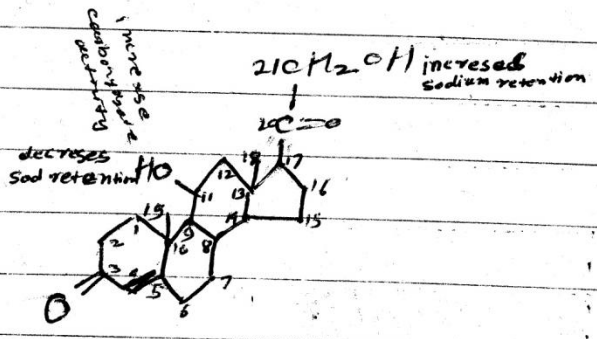 increase
carbohydrate
activity
21CH2OH increased
sodium retention
20C=O
decreses
sod retention HO
18
17
12
11
13
16
19
14
15
1
9
2
10
8
3
4
5
7
6
O